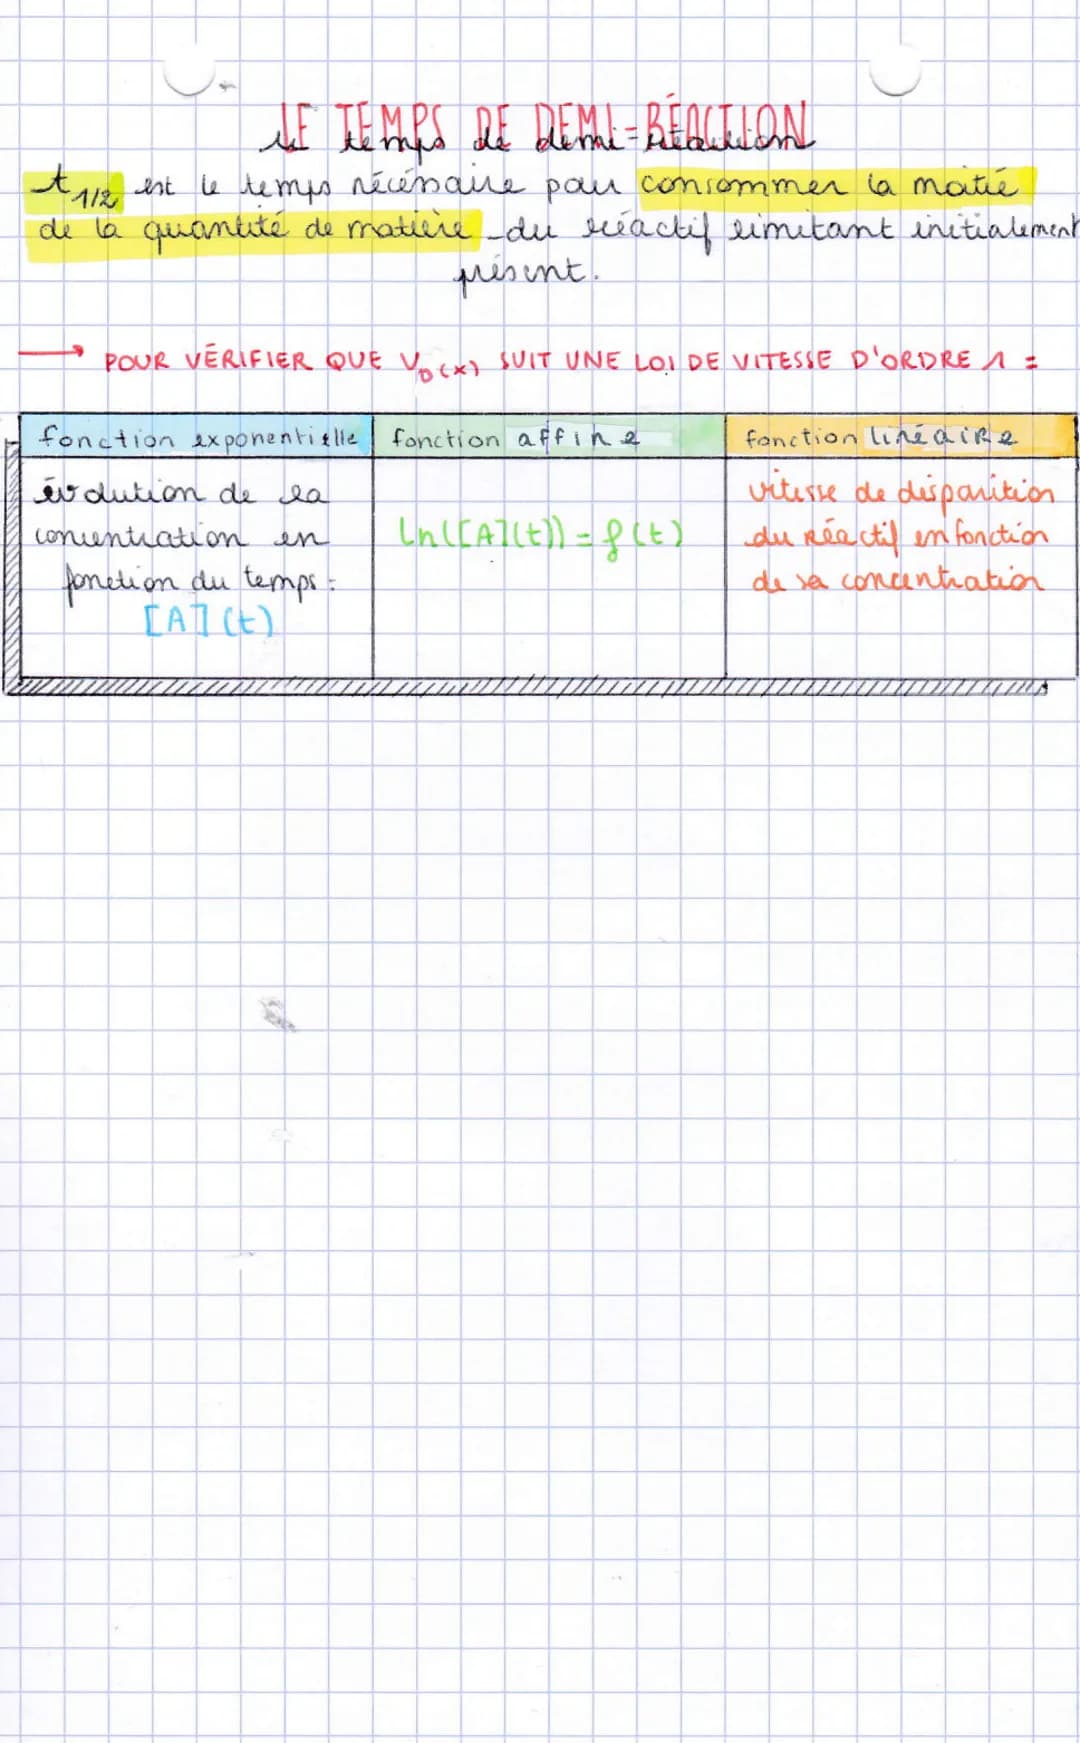 LE TEMPS DE DEMI-RÉACTION
le temps de demi-réaction
t1/2 est le temps nécessaire pour consommer la moitié
de la quantité de matière du réactif limitant initialement
présent.
→ POUR VÉRIFIER QUE VD(X) SUIT UNE LOI DE VITESSE D'ORDRE 1 =
fonction exponentielle
évolution de la
concentration en
fonction du temps :
[A](t)
fonction affine
ln([A](t)) = f(t)
fonction linéaire
vitesse de disparition
du réactif en fonction
de sa concentration